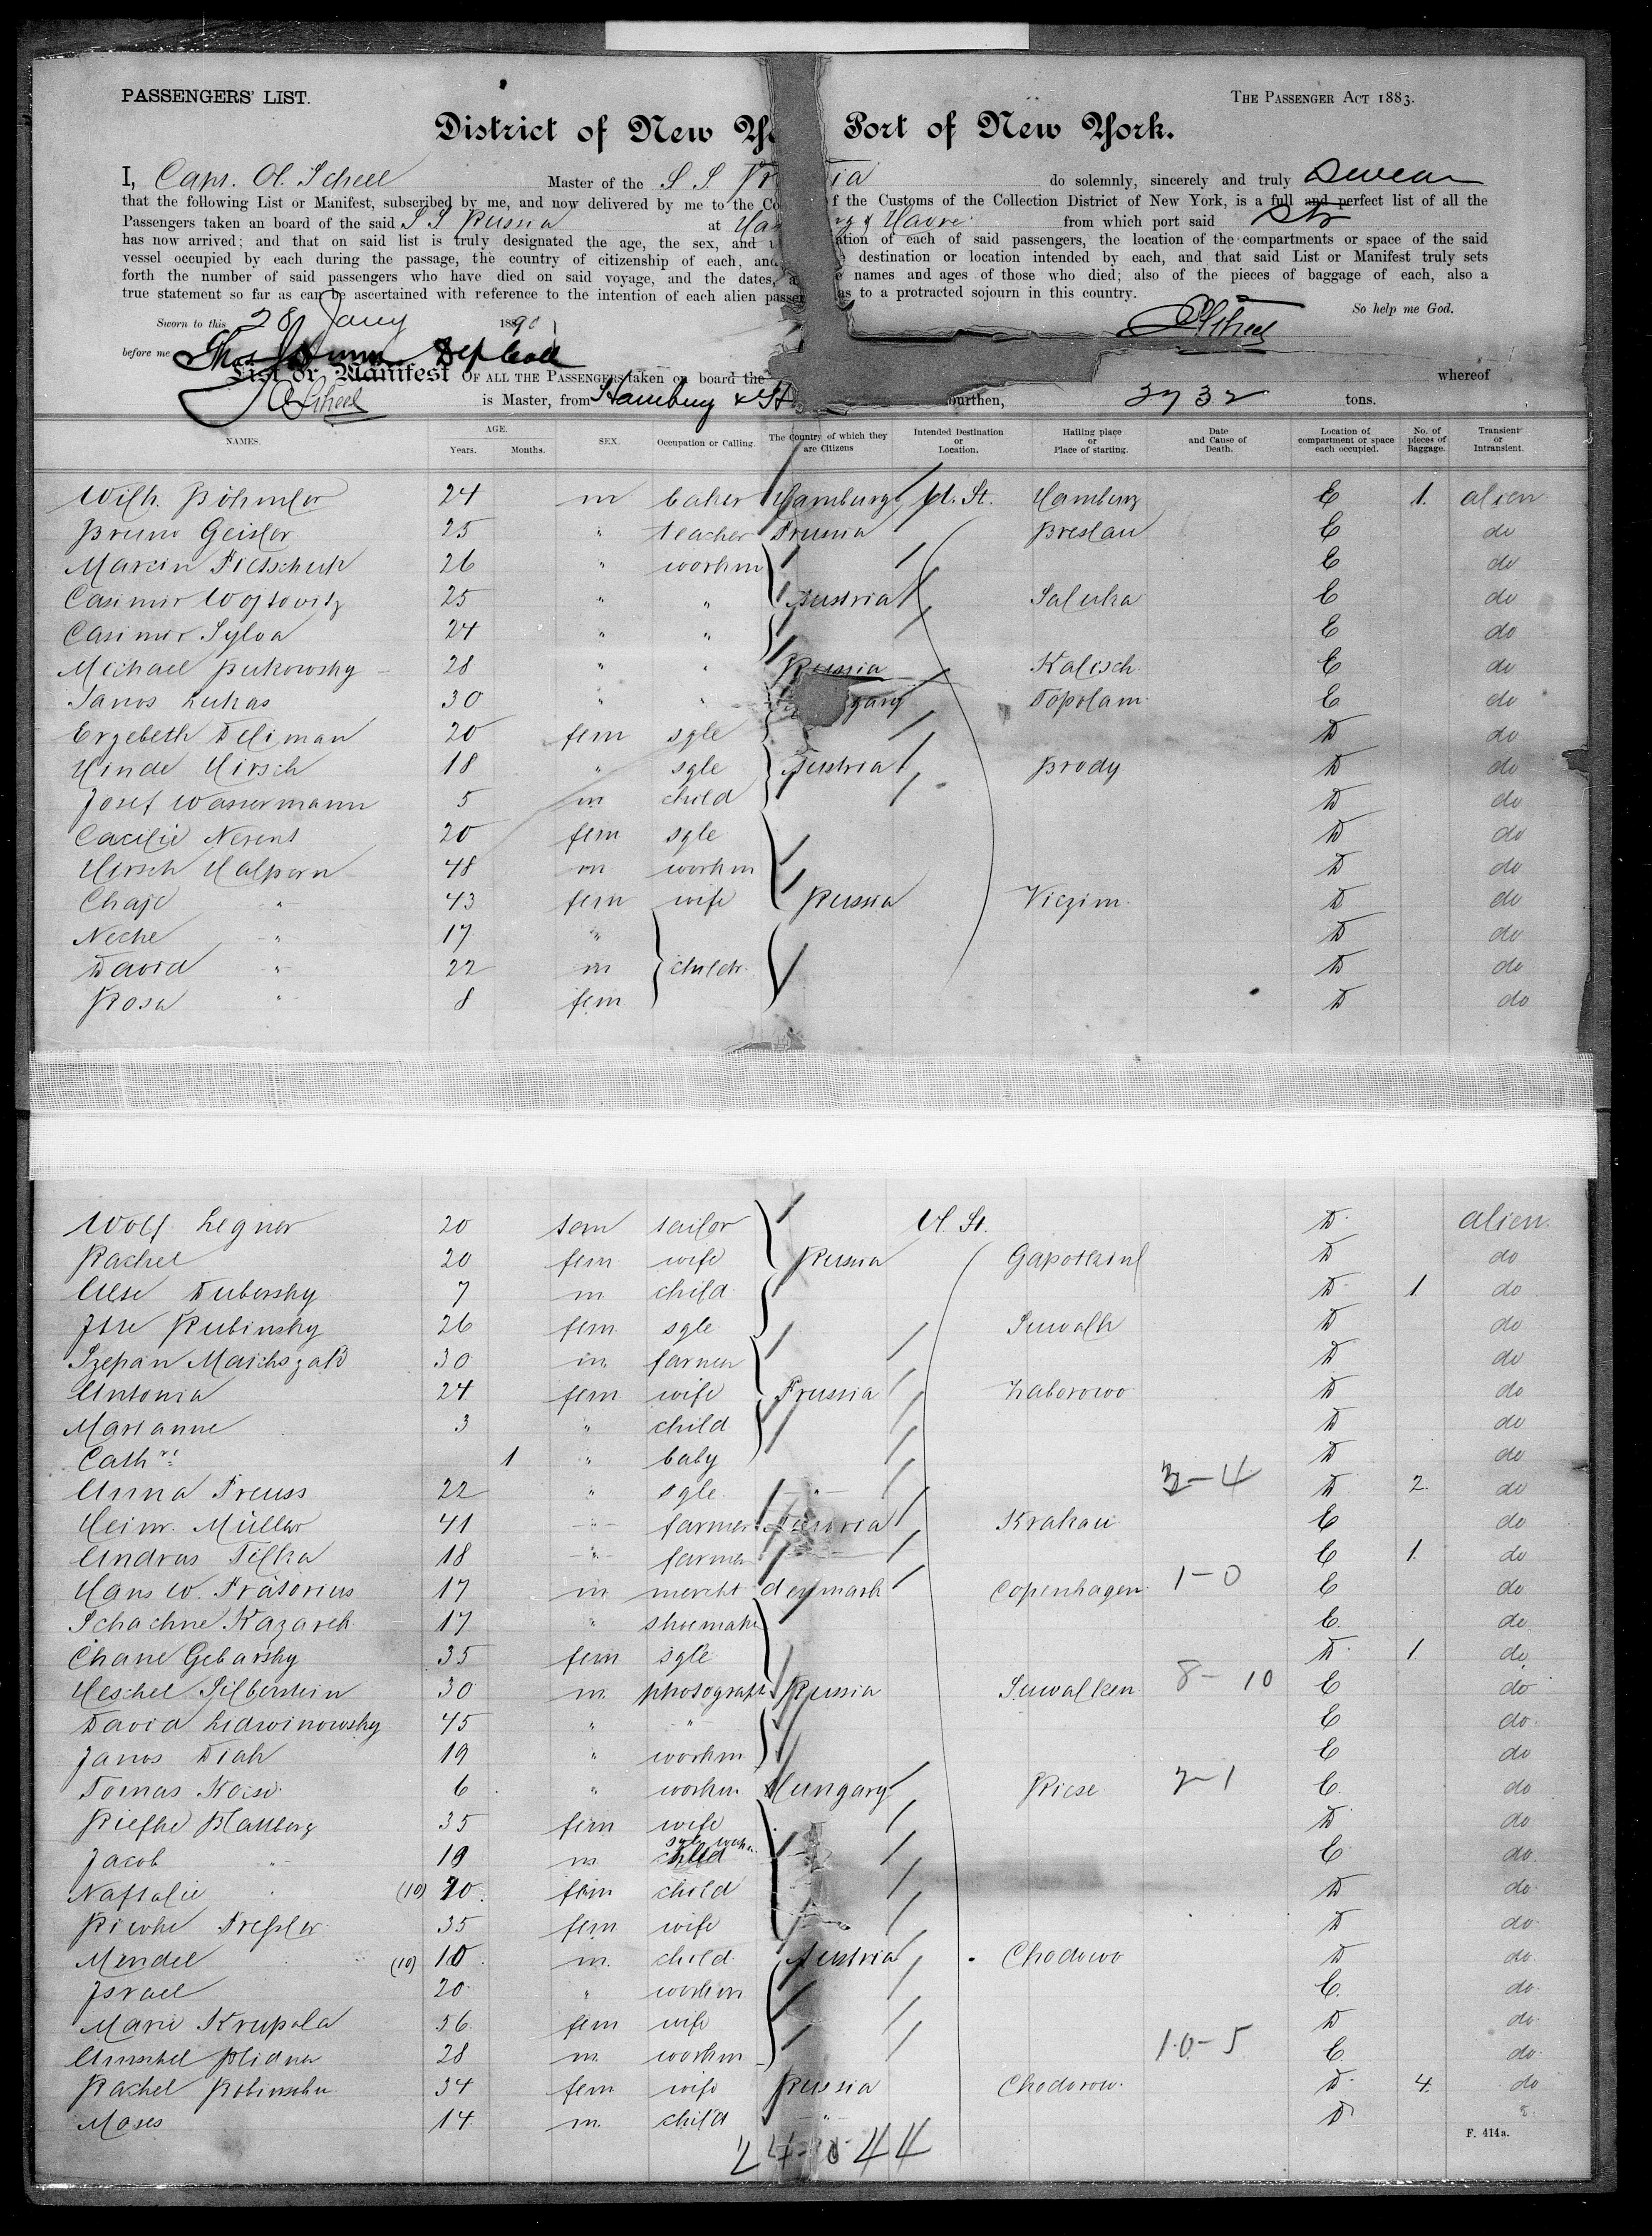 PASSENGERS' LIST.
THE PASSENGER ACT 1883.
District of New Yo Port of New York.
I, Capt. O. Scheel Master of the S S. ia do solemnly, sincerely and truly Swear
that the following List or Manifest, subscribed by me, and now delivered by me to the Co f the Customs of the Collection District of New York, is a full and perfect list of all the
Passengers taken an board of the said S S Russia at Ha g & Havre from which port said Str
has now arrived; and that on said list is truly designated the age, the sex, and ation of each of said passengers, the location of the compartments or space of the said
vessel occupied by each during the passage, the country of citizenship of each, and destination or location intended by each, and that said List or Manifest truly sets
forth the number of said passengers who have died on said voyage, and the dates, names and ages of those who died; also of the pieces of baggage of each, also a
true statement so far as can be ascertained with reference to the intention of each alien passen as to a protracted sojourn in this country.
So help me God.
Sworn to this 28 Jany 1890
before me
List or Manifest OF ALL THE PASSENGERS taken on board the whereof
is Master, from Hamburg & ourthen, 3732 tons.
NAMES. AGE. Years. Months. SEX. Occupation or Calling. The Country of which they are Citizens Intended Destination or Location. Hailing place or Place of starting. Date and Cause of Death. Location of compartment or space each occupied. No. of pieces of Baggage. Transient or Intransient.
Wilh. Böhmler 24 m baker Hamburg U. St. Hamburg E 1. alien
Bruno Geisler 25 " teacher Prussia Breslau E do
Marcin 26 " workm E do
Casimir Wojtovitz 25 " " Austria Saluka E do
Casimir Sylva 24 " " E do
Michael Bukowsky 28 " " Russia Kalisch E do
Janos Lukas 30 " " gary Topolam E do
Erzebeth Deliman 20 fem sgle D do
Hinde Hirsch 18 " sgle Austria Brody D do
Josef Wassermann 5 m child D do
Cacilie Nerent 20 fem sgle D do
Hirsch Halpern 48 m workm D do
Chaje " 43 fem wife Russia Viczim D do
Neche " 17 " D do
David " 22 m childr. D do
Rosa " 8 fem D do
Wolf Legner 20 tailor U. St. D alien.
Rachel 20 fem wife Russia D do
Dubersky 7 m child D 1 do
Rubinsky 26 fem sgle Suwalk D do
Szepan 30 m farmer D do
Antonia 24 fem wife Prussia Zaborowo D do
Marianne 3 " child D do
Cath 1 " baby D do
Anna Preuss 22 " sgle " 3-4 D 2. do
Heinr. Müller 41 " farmer Austria Krakau E do
Andras Tilka 18 " farmer E 1. do
Hans W. Prätorius 17 m mercht denmark Copenhagen 1-0 E do
Schachne Kazarek 17 " shoemake E do
Chane Gebarsky 35 fem sgle D 1 do
Heschel Silberstein 30 m photograph Russia Suwalken 8-10 E do
David Lidwinowsky 45 " " E do
Janos Diak 19 " workm E do
Tomas 6 " workm Hungary Ricse 2-1 E do
35 fem wife D do
Jacob " 19 m sgle workm E do
Naftalie (10) 10 fem child D do
35 fem wife D do
Mendel (10) 10 m child Austria Chodowo D do
Israel 20 " workm E do
Marie Krupola 56 fem wife D do
28 m workm 10-5 E do
Rachel 34 fem wife Russia Chodorow D 4. do
Moses 14 m. child " D
F. 414a.